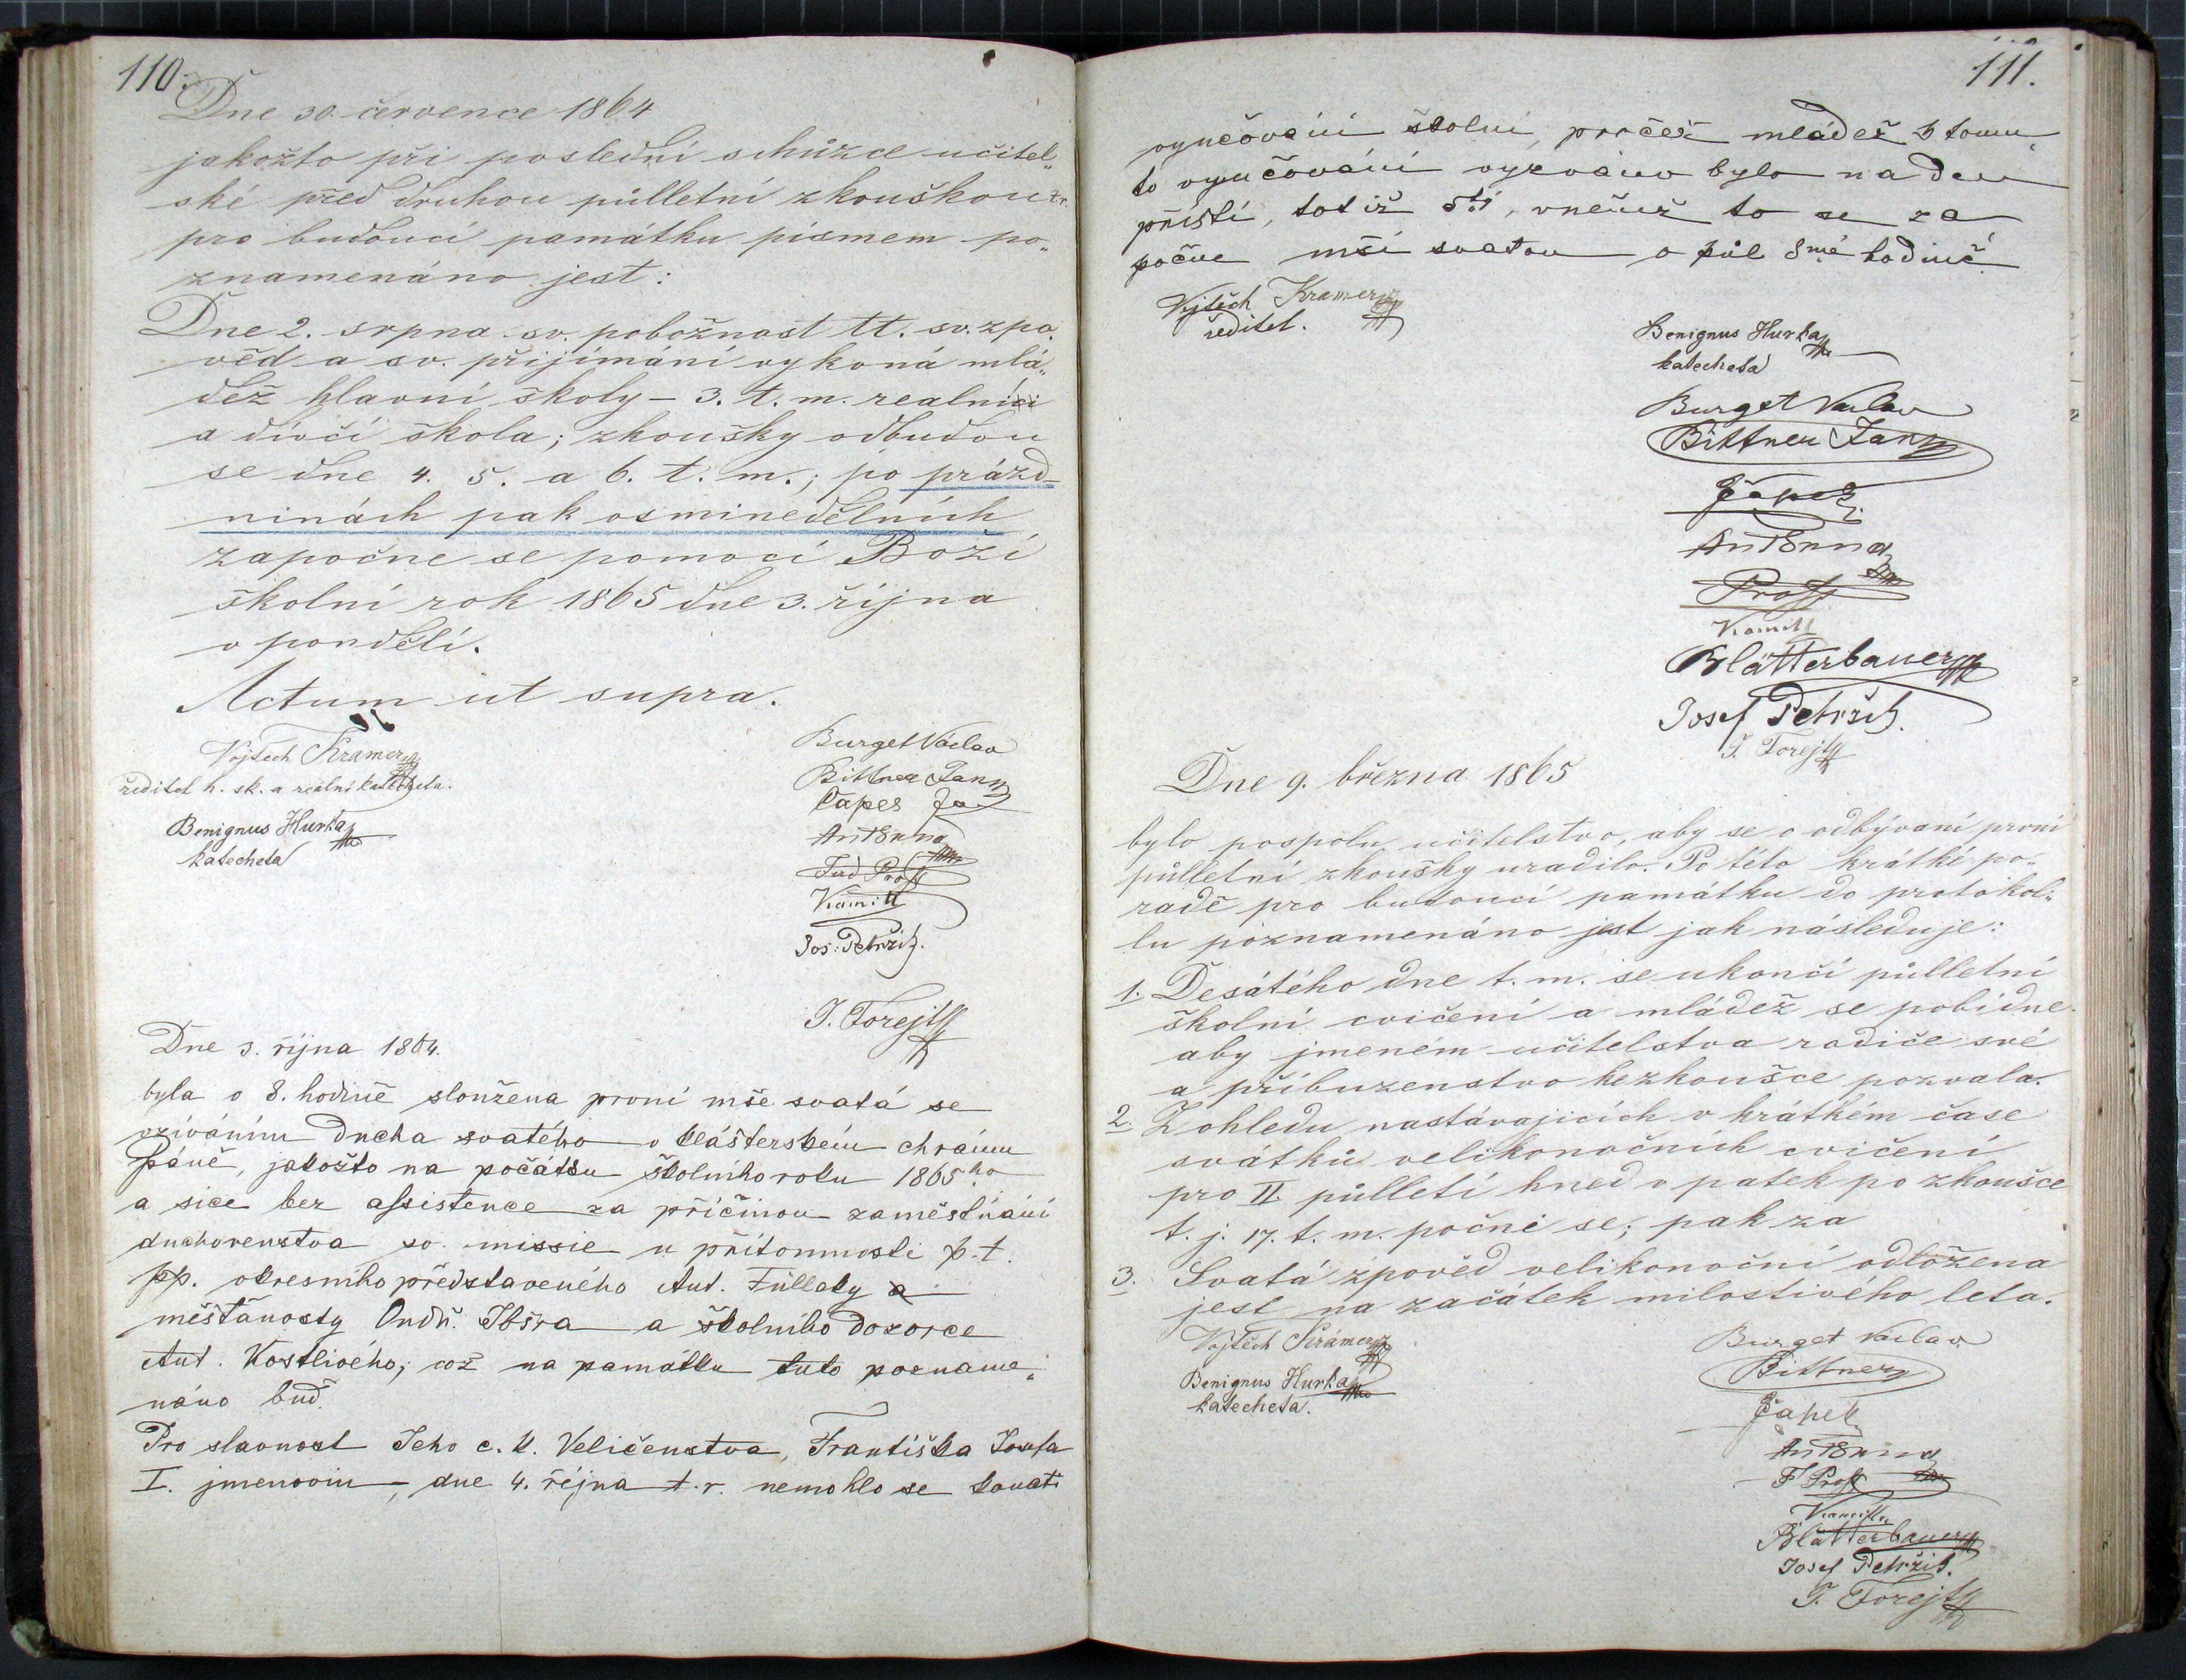 110.
Dne 30. července 1864
jakožto při poslední schůzce učitel„
ské před druhou půlletní zkouškou
pro budoucí památku písmem po„
znamenáno jest:
Dne 2. srpna sv. pobožnost tt. sv. zpo„
věd a sv. přijímání vykoná mlá„
dež hlavní školy – 3. t. m. realní
a dívčí škola; zkoušky odbudou
se dne 4. 5. a 6. t. m.; po prázd–
ninách pak osminedělních
započne se pomocí Boží
školní rok 1865 dne 3. října
v pondělí.
Actum ut supra.
Vojtěch Kramer
ředitel h. šk. a reální katecheta.
Benignus Hurka
katecheta
Burget Václav
Bittner Jan
Čapek Jos
Ant Enna
Ferd Proß
Kamill
Jos: Petržik.
J. Forejt
Dne 3. října 1864.
byla o 8. hodině sloužena první mše svatá se
vzíváním Ducha svatého v klášterském chrámu
Páně, jakožto na počátku školního roku 1865ho
a sice bez assistence za příčinou zaměstnání
duchovenstva sv. missie u přítomnosti p. t.
pp. okresního představeného Ant. Füllaky a
měšťanosty Ondř. Ibšra a školního dozorce
Ant. Kostlivého; což na památku tuto pozname„
náno buď.
Pro slavnost Jeho c. k. Veličenstva, Františka Josefa
I. jmenovin –, dne 4. října t. r. nemohlo se konati
111.
vyučování školní, pročež mládež k tomu„
to vyučování vyzváno bylo na den
příští, totiž 5tý, vněmž to se za
počne mší svatou o půl 8mé hodině.
Vojtěch Kramer
ředitel.
Benignus Hurka
katecheta
Burget Václav
Bittner Jan
Čapek
Ant Enna
Proß
Kamill
Blätterbauer
Josef Petržik.
J. Forejt
Dne 9. března 1865
bylo pospolu učitelstvo, aby se o odbývaní první
půlletní zkoušky uradilo. Po této krátké po„
radě pro budoucí památku do protokol„
lu poznamenáno jest jak následuje:
1. Desátého dne t. m. se ukončí půlletní
školní cvičení a mládež se pobídne
aby jmeném učitelstva rodiče své
a příbuzenstvo ke zkoušce pozvala.
2. Z ohledu nastávajících v krátkém čase
svátků velikonočních cvičení
pro II. půlletí hned v patek po zkoušce
t. j. 17. t. m. počne se; pak za
3. Svatá zpověd velikonoční odložena
jest na začátek milostivého leta.
Vojtěch Krámer
Benignus Hurka
katecheta.
Burget Václav.
Bittner
Čapek
Ant Enna
F Proß
Kamill
Blätterbauer
Josef Petržik.
J. Forejt